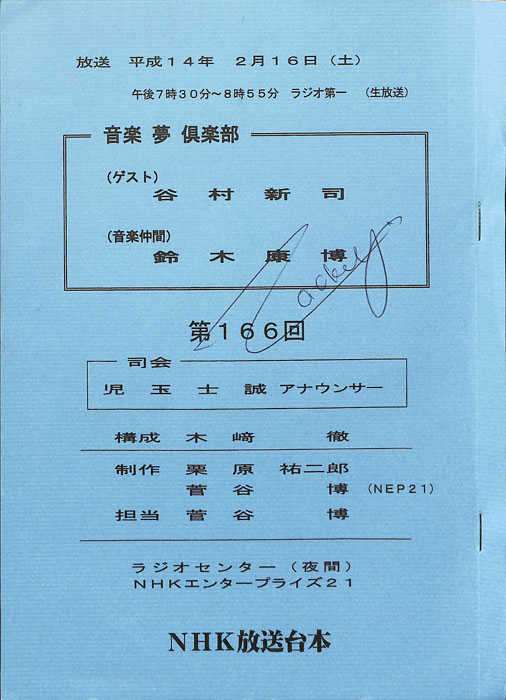 放送　平成１４年　２月１６日（土）
午後７時３０分～８時５５分　ラジオ第一　（生放送）
音楽 夢 倶楽部
（ゲスト）
谷　村　新　司
（音楽仲間）
鈴　木　康　博
第１６６回
司会
児　玉　士　誠　アナウンサー
構成　木　﨑　　徹
制作　栗　原　祐二郎
菅　谷　　博　（ＮＥＰ２１）
担当　菅　谷　　博
ラジオセンター（夜間）
ＮＨＫエンタープライズ２１
ＮＨＫ放送台本